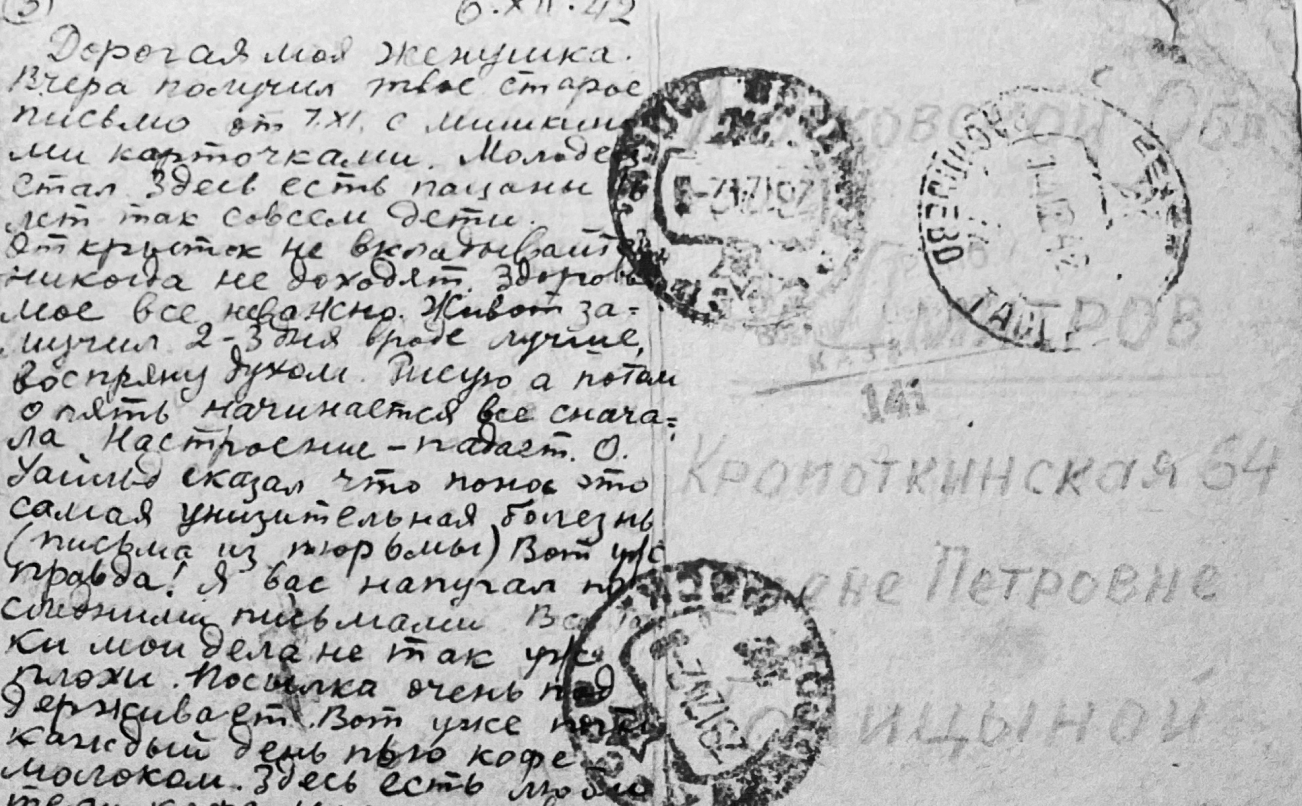 (3)
6.XII.42
Дорогая моя женушка.
Вчера получил твое старое
письмо от 7.XI. с мишкин
ми карточками. Молодец
стал. Здесь есть пацаны
лет так совсем дети.
Открыток не вкладывайте
никогда не доходят. Здоровье
мое все неважно. Живот за-
мучил. 2-3 дня вроде лучше,
воспряну духом. Рисую а потом
опять начинается все снача-
ла Настроение - падает. О.
Уайльд сказал что понос это
самая унизительная болезнь
(письма из тюрьмы) Вот уж
правда! Я вас напугал по
следними письмами Все
ки мои дела не так уж
плохи. Посылка очень под
держивает. Вот уже почти
каждый день пью кофе
молоком. Здесь есть люби
Московской Обл
Дмитров
141
Кропоткинская 64
Петровне
ицыной